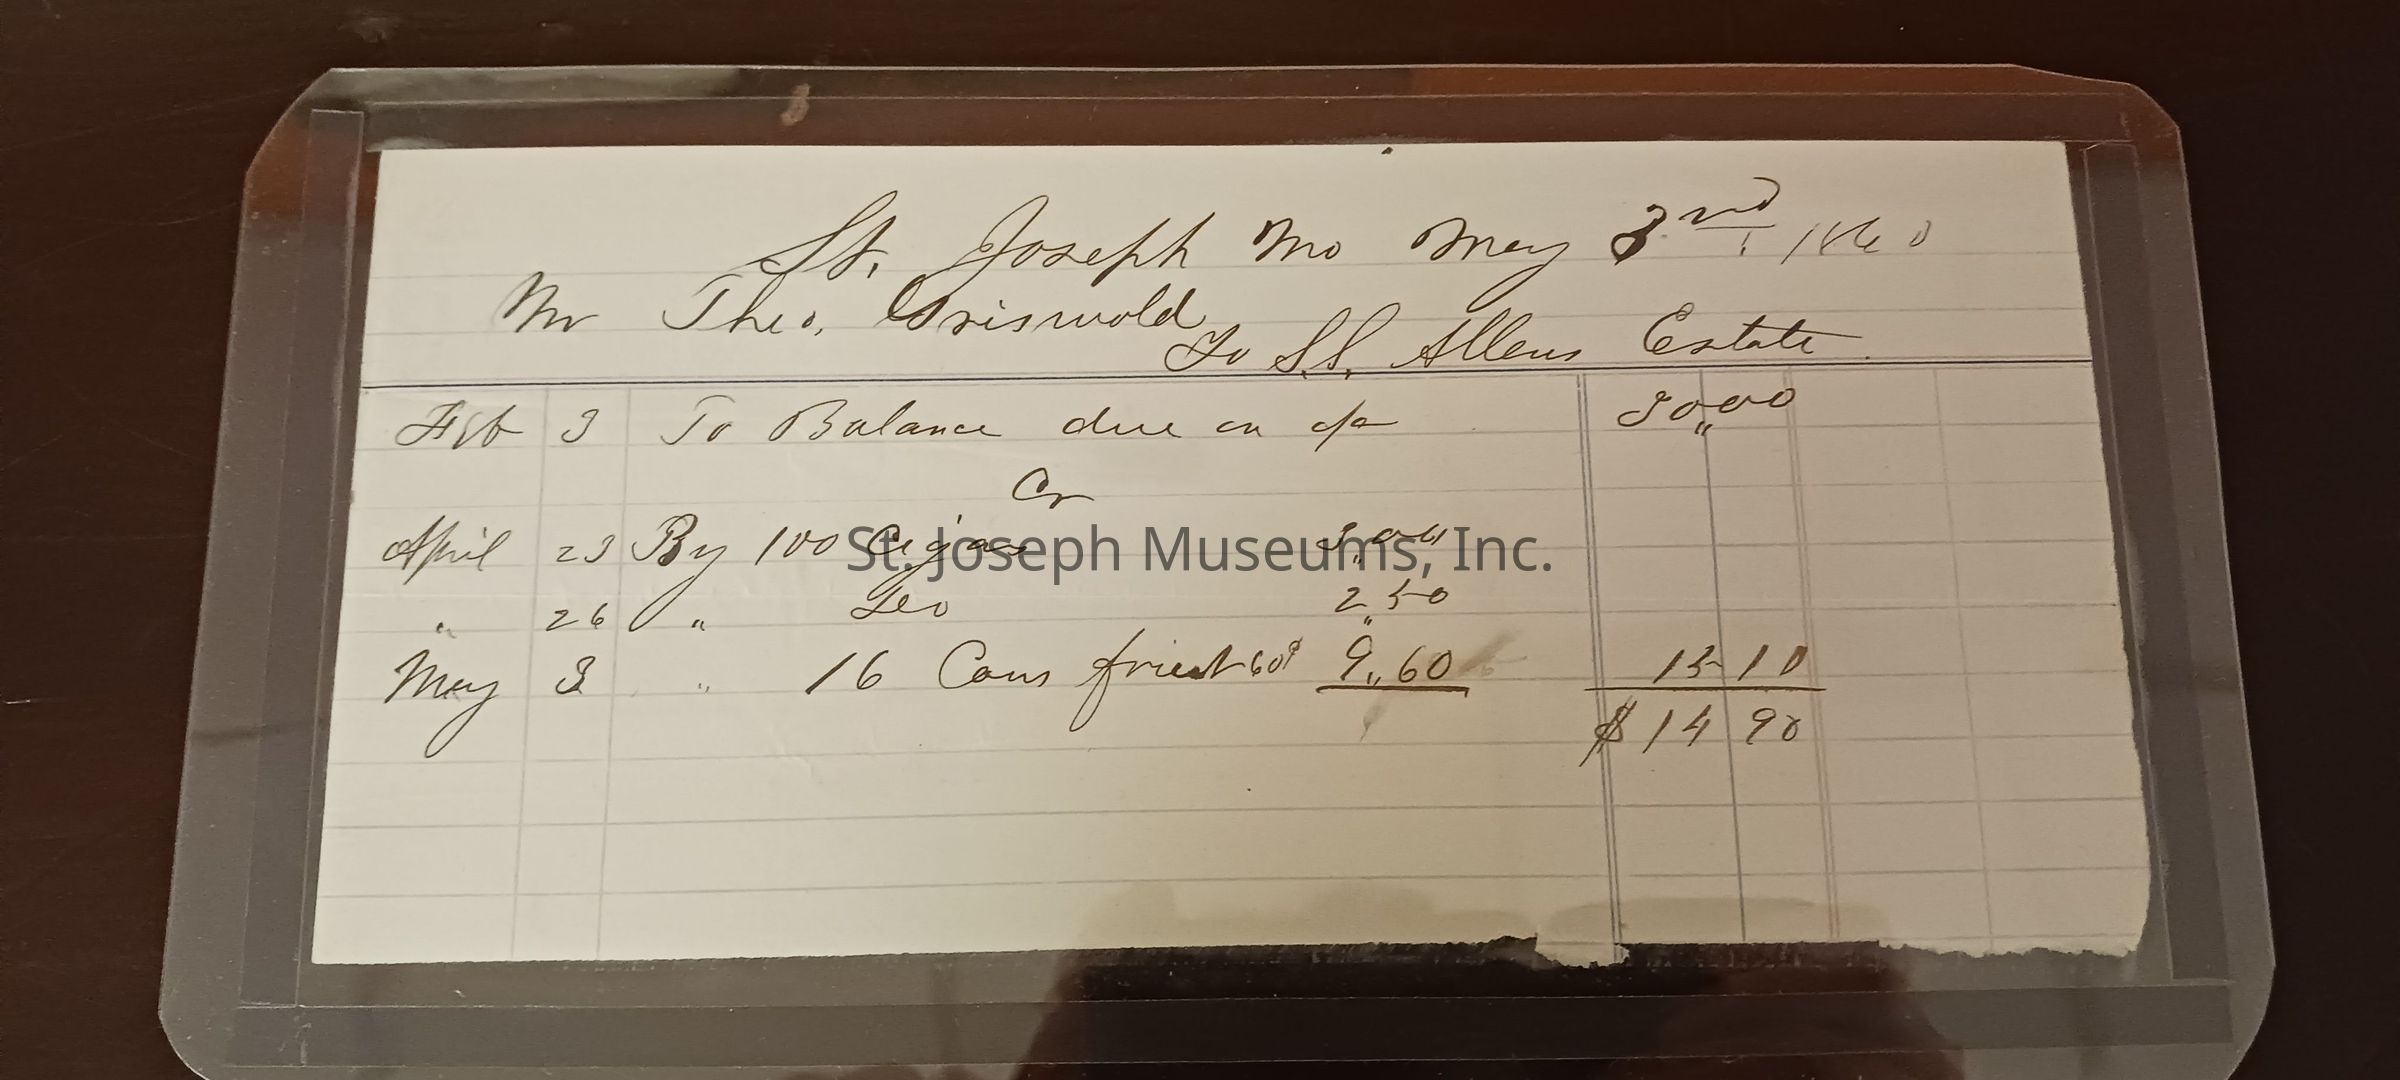 St. Joseph Mo May 3rd 1860
Mr Theo. Griswold
To S.S. Allens Estate
Feb 3 To Balance due on a/c 30,,00
Cr
April 23 By 100 Cigars 3,,00
St. Joseph Museums, Inc.
" 26 " 2,,50
May 3 " 16 Cans fruit 60¢ 9,,60 15 10
$ 14 90